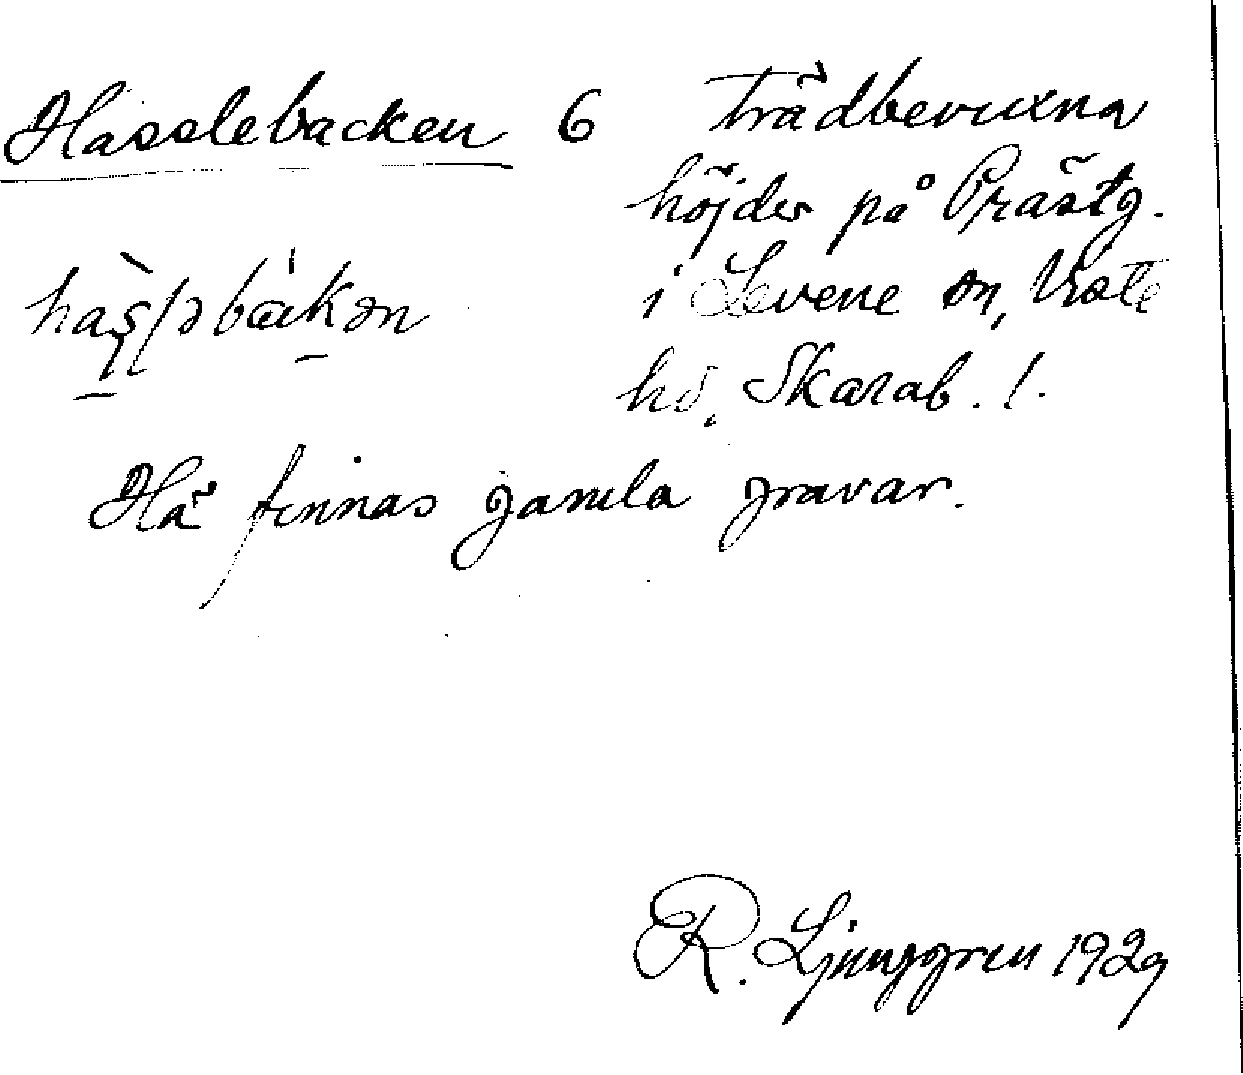 Hasslebacken 6 Trädbevuxna
höjder på Prästg.
i Levene sn, Viste
hd, Skarab. l.
Hä finnas gamla gravar.
R. Ljunggren 1929